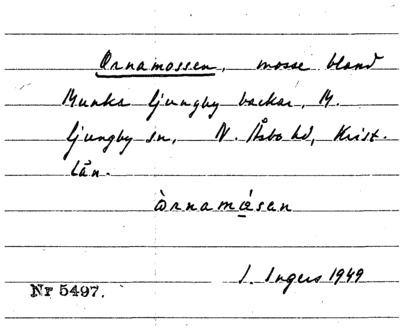 Ornamossen, mosse bland
Munka ljungby backar, M.
ljungby sn, N. Åsbo hd, Krist.
län.
òrnamǫ́sen
I. Ingers 1949
Nr 5497.